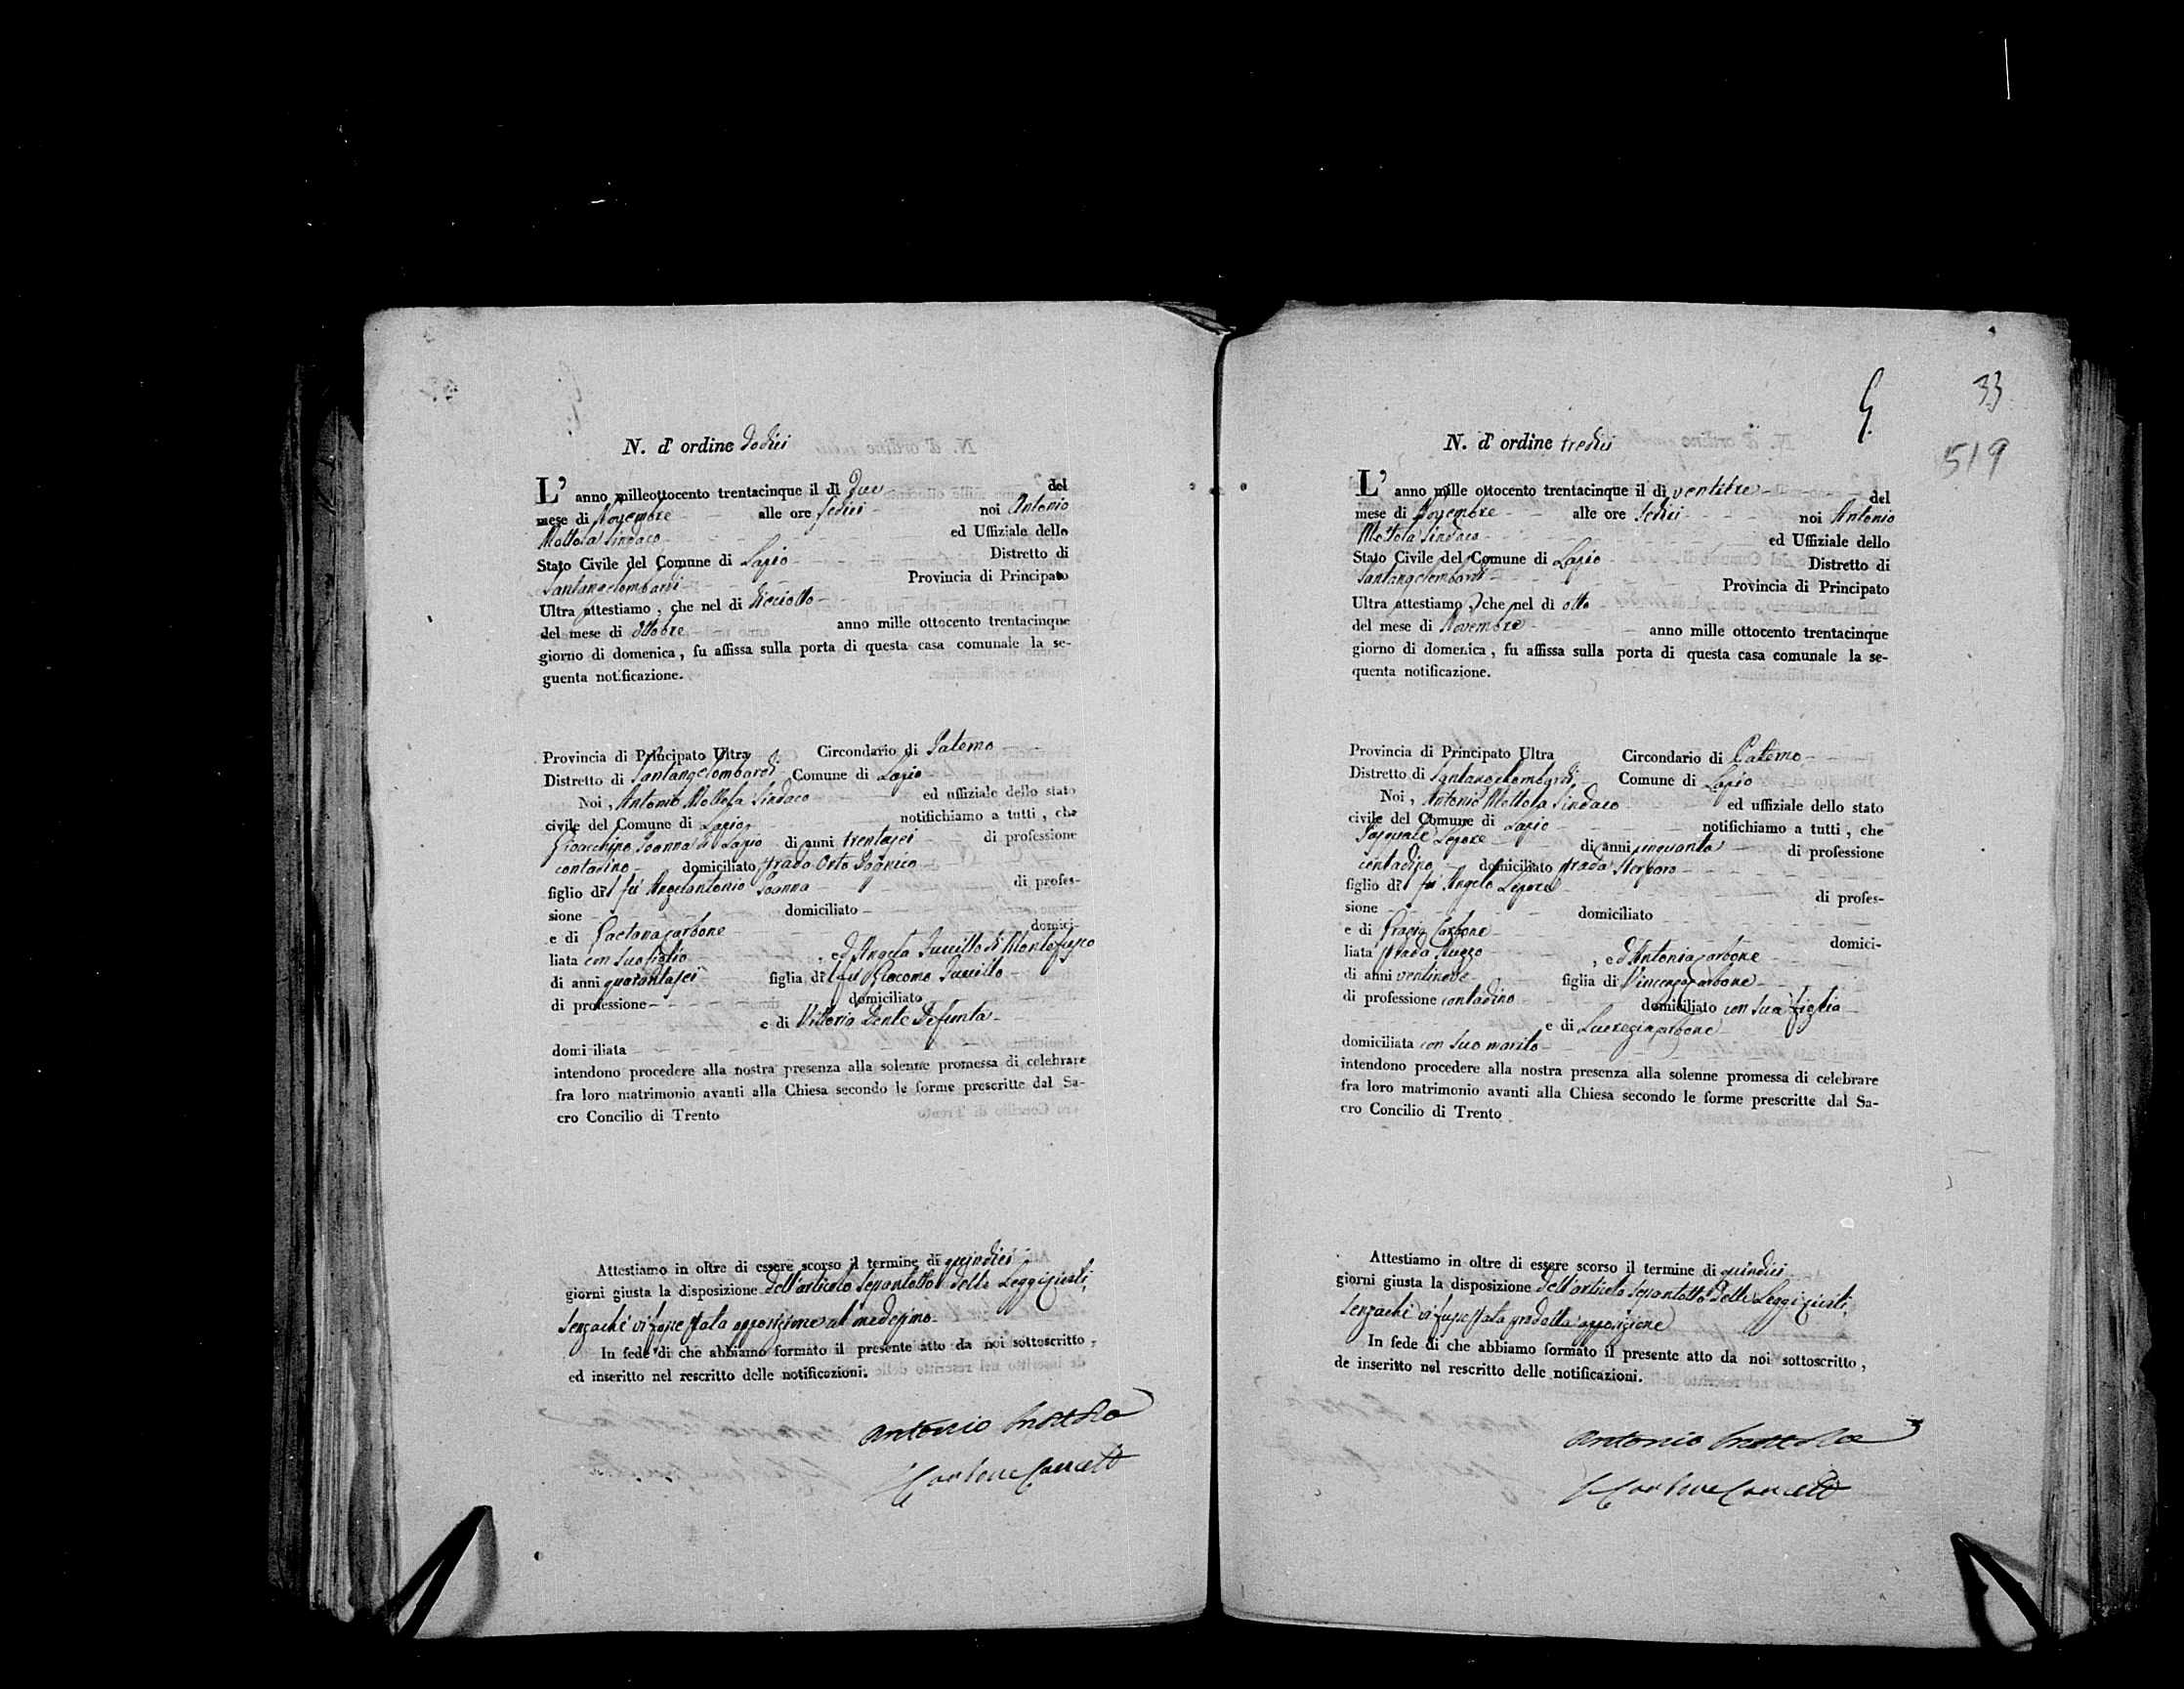 N. d' ordine dodici
L' anno milleottocento trentacinque il dì due del
mese di Novembre alle ore sedici noi Antonio
Mottola Sindaco ed Uffiziale dello
Stato Civile del Comune di Lapio Distretto di
Santangelombardi Provincia di Principato
Ultra attestiamo, che nel di dieciotto
del mese di Ottobre anno mille ottocento trentacinque
giorno di domenica, fu affissa sulla porta di questa casa comunale la se-
guenta notificazione.
Provincia di Principato Ultra Circondario di Paterno
Distretto di Santangelombardi Comune di Lapio
Noi, Antonio Mottola Sindaco ed uffiziale dello stato
civile del Comune di Lapio notifichiamo a tutti, che
Gioacchino Ioanna di Lapio di anni trentasei di professione
contadino domiciliato strada Orto
figlio di fu Angelantonio Ioanna di profes-
sione domiciliato
e di Gaetana Carbone domici-
liata con suo figlio, ed Angela di Montefusco
di anni quarantasei figlia di fu Giacomo
di professione domiciliato
e di Vittoria Dente Defunta
domiciliata
intendono procedere alla nostra presenza alla solenne promessa di celebrare
fra loro matrimonio avanti alla Chiesa secondo le forme prescritte dal Sa-
cro Concilio di Trento
Attestiamo in oltre di essere scorso il termine di quindici
giorni giusta la disposizione dell'articolo sessantotto delle Leggi civili,
senzachè vi fosse stata opposizione al medesimo.
In fede di che abbiamo formato il presente atto da noi sottoscritto,
ed inseritto nel rescritto delle notificazioni.
Antonio Mottola
33
519
N. d' ordine tredici
L' anno mille ottocento trentacinque il di ventitre del
mese di Novembre alle ore sedici noi Antonio
Mottola Sindaco ed Uffiziale dello
Stato Civile del Comune di Lapio Distretto di
Santangelombardi Provincia di Principato
Ultra attestiamo, che nel di otto
del mese di Novembre anno mille ottocento trentacinque
giorno di domenica, fu affissa sulla porta di questa casa comunale la se-
quenta notificazione.
Provincia di Principato Ultra Circondario di Paterno
Distretto di Santangelombardi Comune di Lapio
Noi, Antonio Mottola Sindaco ed uffiziale dello stato
civile del Comune di Lapio notifichiamo a tutti, che
Pasquale Lepore di anni cinquanta di professione
contadino domiciliato strada
figlio di fu Angelo Lepore di profes-
sione domiciliato
e di Grazia Carbone domici-
liata strada, ed Antonia Carbone
di anni ventinove figlia di Vincenzo Carbone
di professione contadino domiciliato con sua figlia
e di Lucrezia Carbone
domiciliata con suo marito
intendono procedere alla nostra presenza alla solenne promessa di celebrare
fra loro matrimonio avanti alla Chiesa secondo le forme prescritte dal Sa-
cro Concilio di Trento
Attestiamo in oltre di essere scorso il termine di quindici
giorni giusta la disposizione dell'articolo sessantotto delle Leggi civili,
senzachè vi fusse stata prodotta opposizione
In fede di che abbiamo formato il presente atto da noi sottoscritto,
de inseritto nel rescritto delle notificazioni.
Antonio Mottola